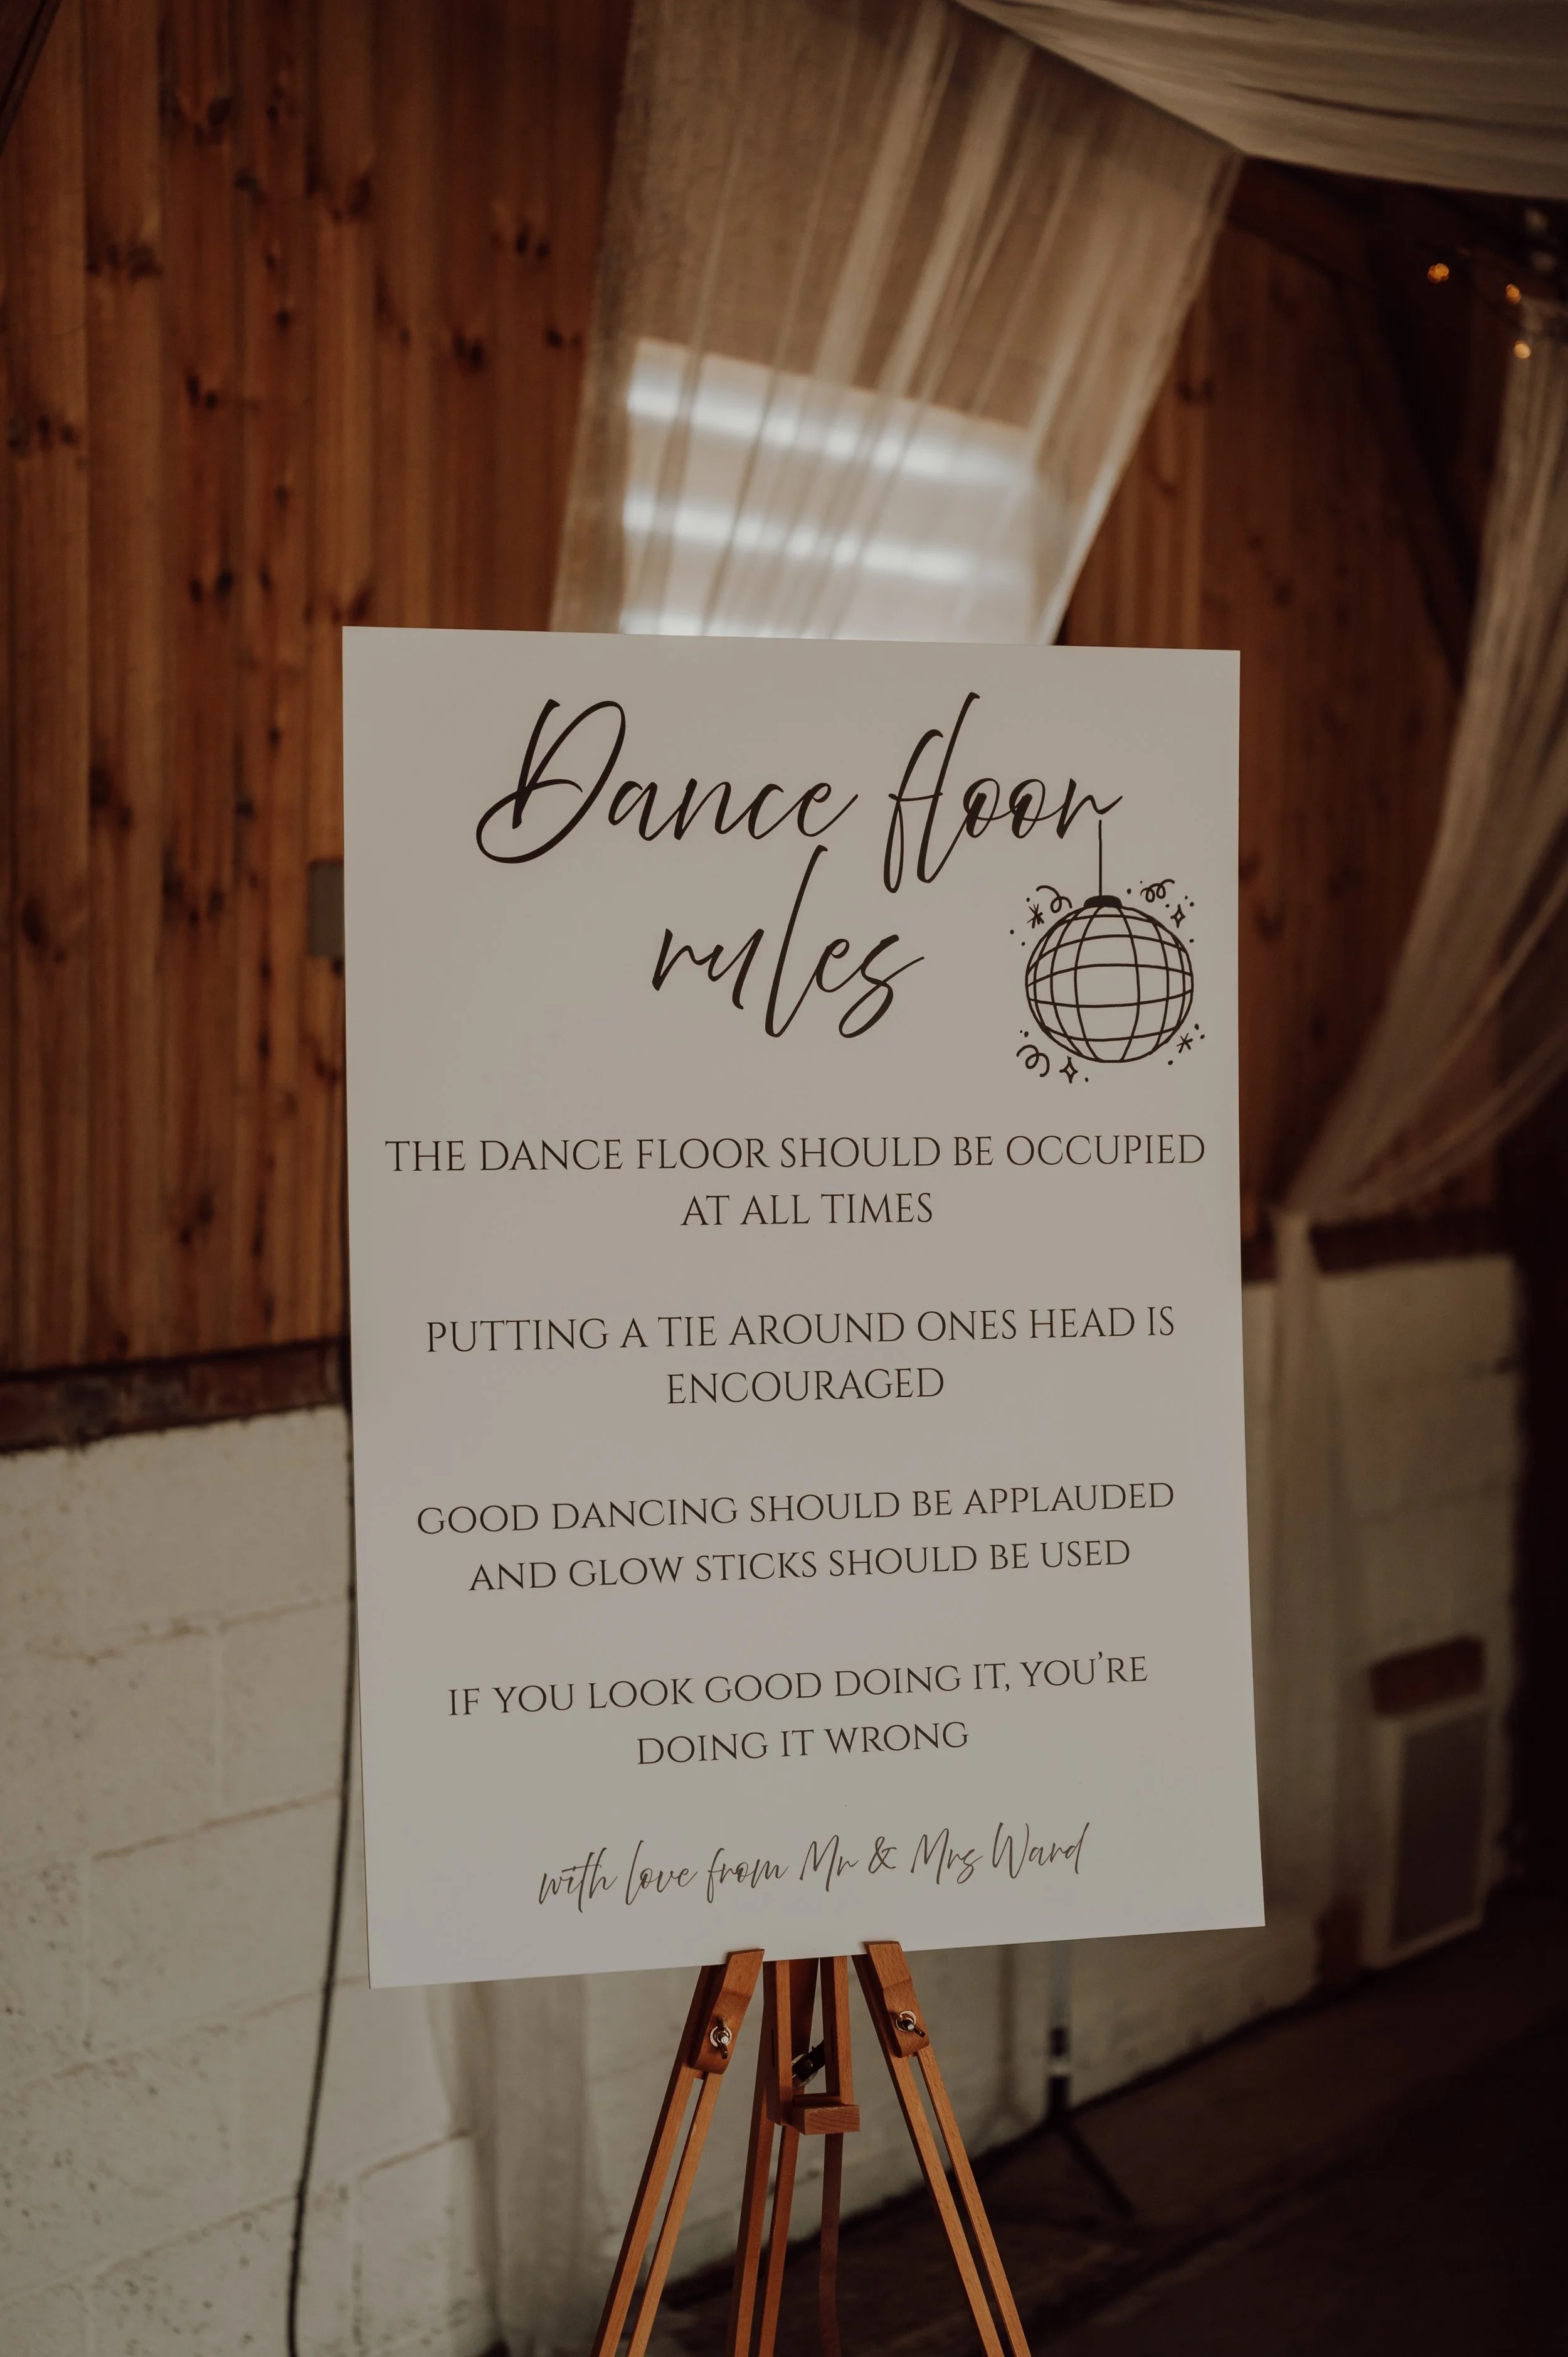 Dance floor
rules
THE DANCE FLOOR SHOULD BE OCCUPIED
AT ALL TIMES
PUTTING A TIE AROUND ONES HEAD IS
ENCOURAGED
GOOD DANCING SHOULD BE APPLAUDED
AND GLOW STICKS SHOULD BE USED
IF YOU LOOK GOOD DOING IT, YOU'RE
DOING IT WRONG
with love from Mr & Mrs Ward